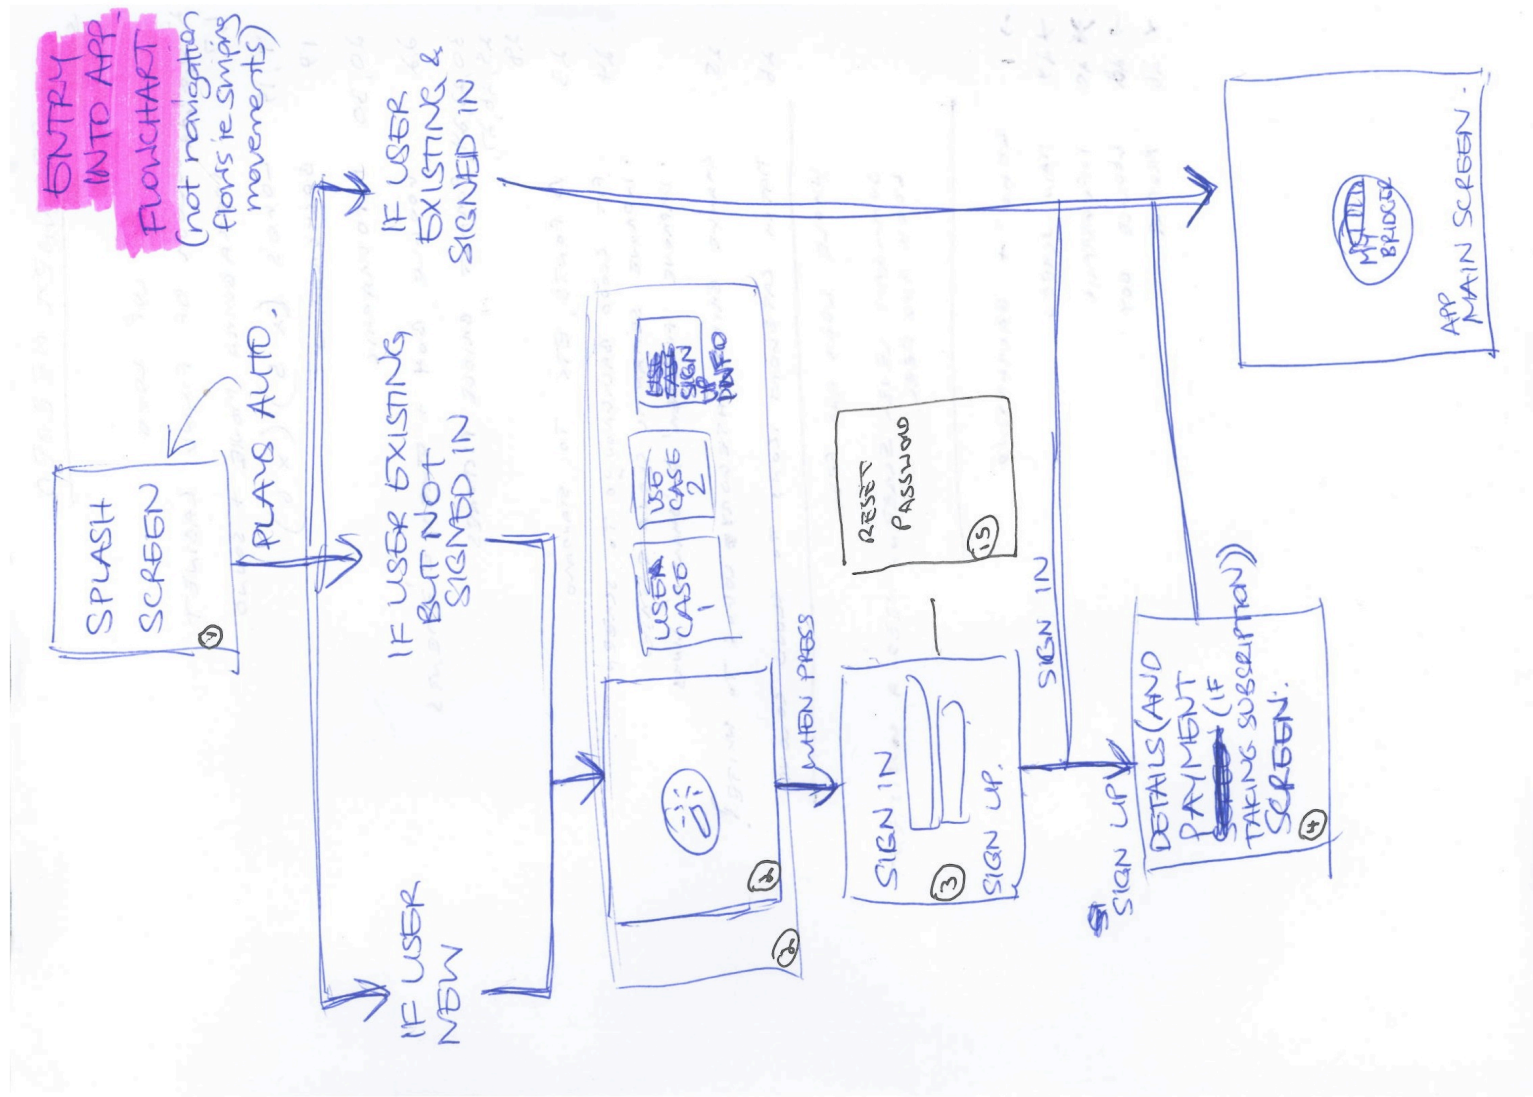 ENTRY
INTO APP.
FLOWCHART
(not navigation
flows ie swiping
movements)
SPLASH
SCREEN
1
PLAYS AUTO.
IF USER
NEW
IF USER EXISTING
BUT NOT
SIGNED IN
IF USER
EXISTING &
SIGNED IN
2
2
USER
CASE
1
USE
CASE
2
SIGN
UP
INFO
WHEN PRESS
SIGN IN
SIGN UP.
3
RESET
PASSWORD
15
SIGN UP
SIGN IN
DETAILS (AND
PAYMENT
(IF
TAKING SUBSRIPTION))
SCREEN.
4
MY
BRIDGER
APP
MAIN SCREEN.